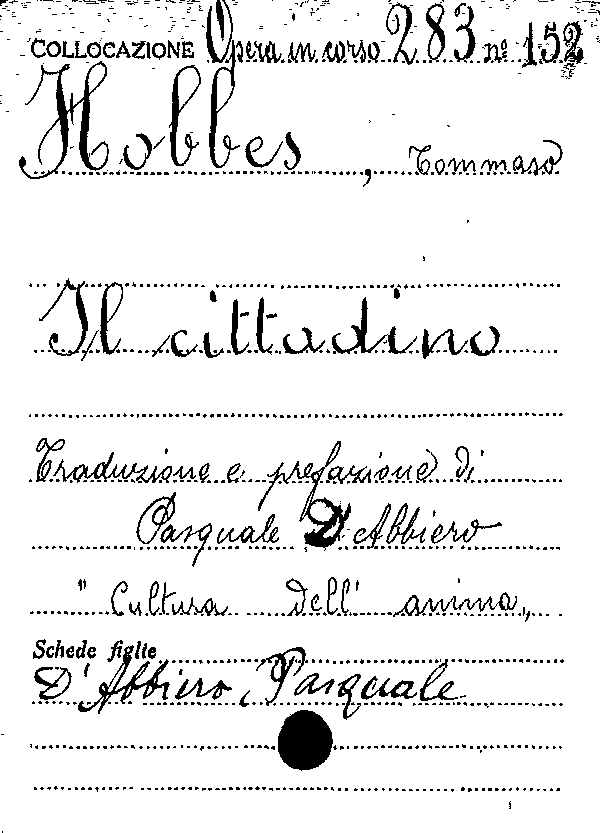 COLLOCAZIONE Opera in corso 283 nº 152
Hobbes, Tommaso
Il cittadino
Traduzione e prefazione di
Pasquale D'Abbiero
"Cultura dell'anima„
Schede figlie
D'Abbiero, Pasquale